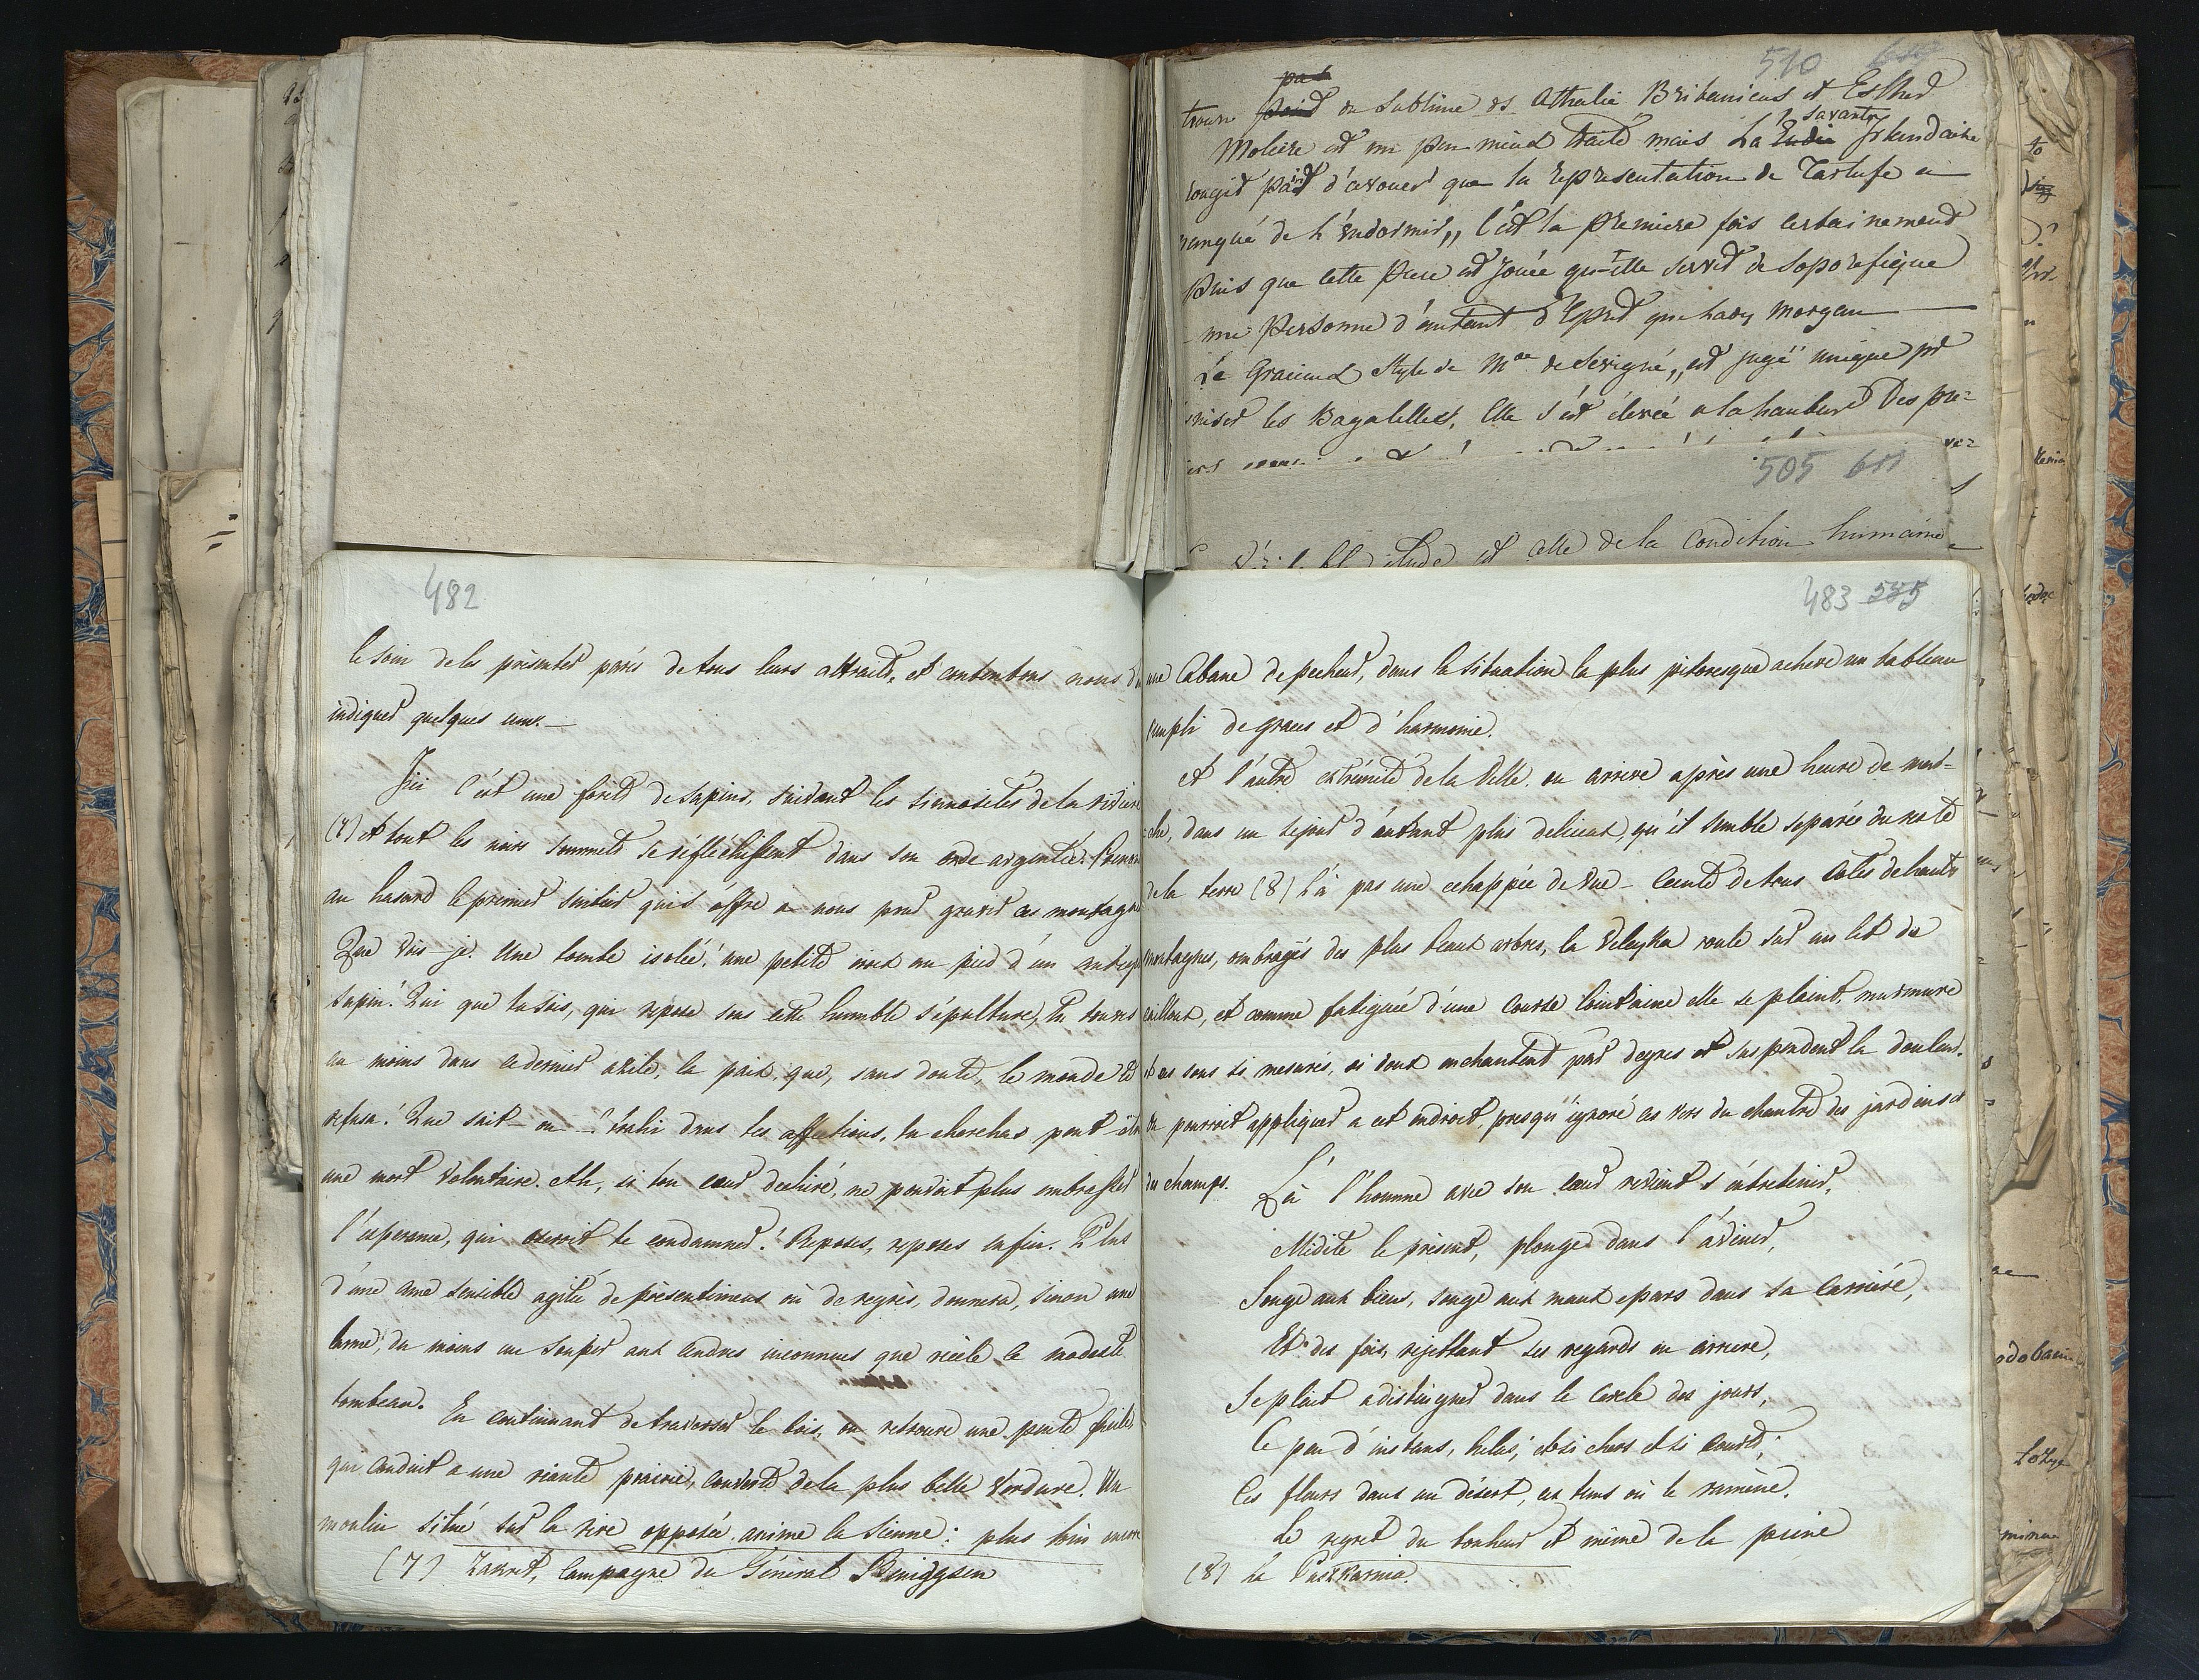 510 619
pas
trouve point du sublime ds Athalie Britanicus et Esther
savante
Moliere est un peu mieux traité mais La Irlandaise
rougit point d'avouer que la representation de Tartufe a
manqué de l'endormir,, C'est la premiere fois certainement
puis que cette piece est jouée qu'elle servit de soporofique
une personne d'autant d'Esprit que Lady Morgan
Le Gracieux style de Mde de Sevigné,, est jugé unique pr
les Bagatelles, Elle s'est élevée a la hauteur Des pre-
505 611
étude est celle de la Condition humaine
482
le soin de les présenter parés de tous leurs attraits, et contentons nous d'en
indiquer quelques uns.—
Ici c'est une forêt de sapins, suivant les sinuosités de la riviere
(7) et dont les noirs sommets se réfléchissent dans son onde argentée. Prenons
au hasard le premier sentier qui s'offre a nous pour gravir ces montagnes
Que vois-je! Une tombe isolée! une petite croix au pied d'un antique
sapin! Qui que tu sois, qui repose sous cette humble sépulture, tu trouves
au moins dans ce dernier azile, la paix, que, sans doute, le monde te
refusa! Que sait-on—! trahi dans tes affections, tu cherchas peut-être
une mort volontaire. Ah, si ton coeur dechiré, ne pouvait plus embrasser
l'esperance, qui oseroit te condamner! Reposes, reposes enfin. Plus
d'une ame sensible agitée de présentimens ou de regrès, donnera, sinon une
larme, du moins un soupir aux cendres inconnues que récele ce modeste
tombeau. En continuant de traverser le bois, on retrouve une pente facile
qui conduit a une riante prairie, couverte de la plus belle verdure. Un
moulin situé sur la rive opposée anime la sienne: plus loin encore
(7) Zakret, Campagne du Général Beniggsen
483 585
une Cabane de pecheur, dans la situation la plus pitoresque acheve un tableau
rempli de graces et d'harmonie.
A l'autre extrémité de la Ville, on arrive après une heure de mar-
che, dans un sejour d'autant plus delicieux, qu'il semble separée du reste
de la terre (8) Là pas une echappée de vue— Ceinte de tous Cotés de hautes
montagnes, ombragés des plus beaux arbres, la Veleyka roule sur un lit de
cailloux, et comme fatiguée d'une Course lointaine elle se plaint, murmure
et ces sons si mesurés, si doux enchantent par degres et suspendent la douleur.
On pourroit appliquer a cet endroit, presqu'ignoré ces vers du chantre des jardins et
du champs.
Là l'homme avec son coeur revient s'entretenir,
Médite le présent, plonge dans l'avenir,
Songe aux biens, songe aux maux epars dans sa Carriere,
Et des fois, rejettant ses regards en arriere,
Se plait a distinguer dans le Cercle des jours,
Ce peu d'instans, helas, et si chers et si courts;
Ces fleurs dans un désert, ces tems où le ramène,
Le regret du bonheur et même de la peine
(8) La Puszkarnia.